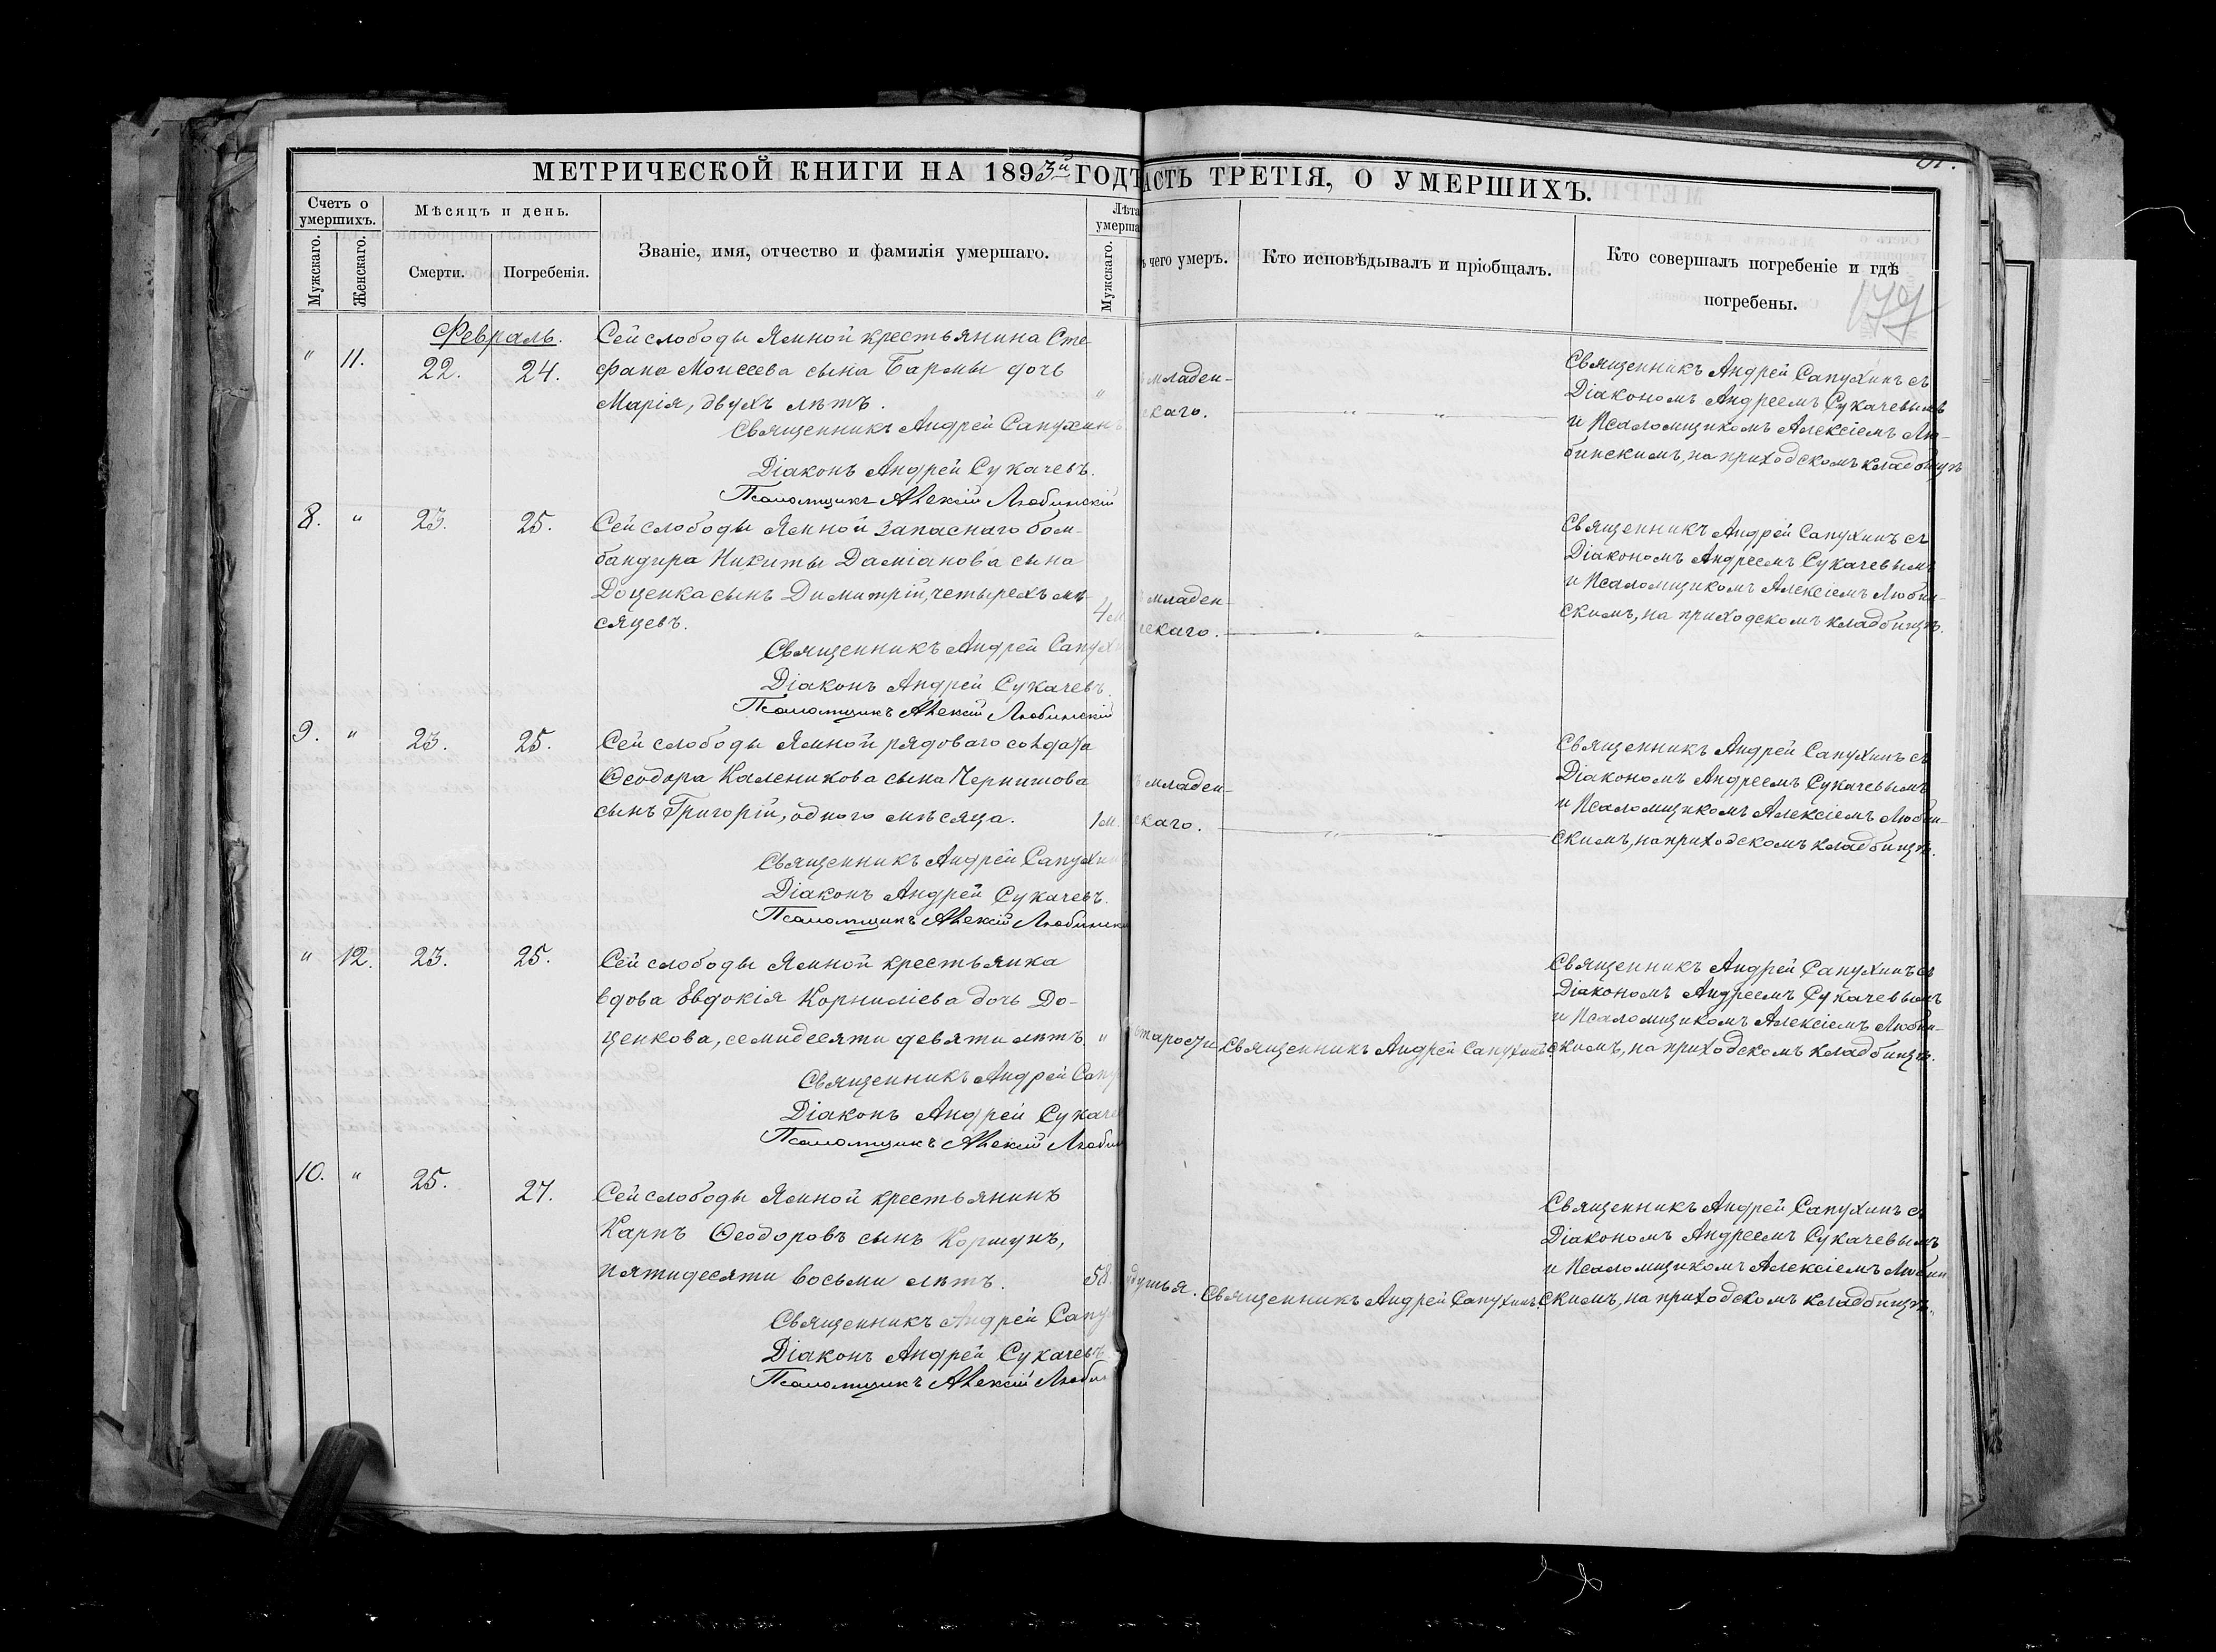 МЕТРИЧЕСКОЙ КНИГИ НА 1893й ГОДЪ
Счетъ о умершихъ.
Мужскаго.
Женскаго.
Мѣсяцъ и день.
Смерти.
Погребенія.
Званіе, имя, отчество и фамилія умершаго.
Лѣта
умерша
Мужскаго.
Февраль.
" 11. 22. 24.
Сей слободы Ямной крестьянина Сте-
фана Моисеева сына Бармы дочь
Марія, двухъ лѣтъ. "
Священникъ Андрей Сапухинъ
Діаконъ Андрей Сукачевъ.
Псаломщикъ Алексій Любинскій
8. " 23. 25.
Сей слободы Ямной запаснаго бом-
бандира Никиты Даміанова сына
Доценка сынъ Димитрій, четырехъ мѣ-
сяцевъ. 4 м
Священникъ Андрей Сапух
Діаконъ Андрей Сукачевъ.
Псаломщикъ Алексій Любинскій
9. " 23. 25.
Сей слободы Ямной рядоваго солдата
Ѳеодора Каленикова сына Чернишова
сынъ Григорій, одного мѣсяца. 1 м.
Священникъ Андрей Сапухин
Діаконъ Андрей Сукачевъ.
Псаломщикъ Алексій Любински
" 12. 23. 25.
Сей слободы Ямной крестьянка
вдова Евдокія Корниліева дочь До-
ценкова, семидесяти девяти лѣтъ "
Священникъ Андрей Сапу
Діаконъ Андрей Сукаче
Псаломщикъ Алексій Любин
10. " 25. 27.
Сей слободы Ямной крестьянинъ
Карпъ Ѳеодоровъ сынъ Коршунъ,
пятидесяти восьми лѣтъ. 58.
Священникъ Андрей Сапу
Діаконъ Андрей Сукачевъ
Псаломщикъ Алексій Люби
АСТЬ ТРЕТІЯ, О УМЕРШИХЪ.
ъ чего умеръ.
Кто исповѣдывалъ и пріобщалъ.
Кто совершалъ погребеніе и гдѣ
погребены.
177
младен-
скаго. " "
Священникъ Андрей Сапухинъ съ
Діакономъ Андреемъ Сукачевымъ
и Псаломщикомъ Алексіемъ Лю-
бинскимъ, на приходскомъ кладбищѣ
младен-
ескаго. " "
Священникъ Андрей Сапухинъ съ
Діакономъ Андреемъ Сукачевымъ
и Псаломщикомъ Алексіемъ Любин-
скимъ, на приходскомъ кладбищѣ.
ъ младен-
скаго. " "
Священникъ Андрей Сапухинъ съ
Діакономъ Андреемъ Сукачевымъ
и Псаломщикомъ Алексіемъ Любин-
скимъ, на приходскомъ кладбищѣ.
старости Священникъ Андрей Сапухинъ
Священникъ Андрей Сапухинъ съ
Діакономъ Андреемъ Сукачевымъ
и Псаломщикомъ Алексіемъ Любин-
скимъ, на приходскомъ кладбищѣ.
удушья. Священникъ Андрей Сапухинъ
Священникъ Андрей Сапухинъ съ
Діакономъ Андреемъ Сукачевымъ
и Псаломщикомъ Алексіемъ Любин
скимъ, на приходскомъ кладбищѣ.